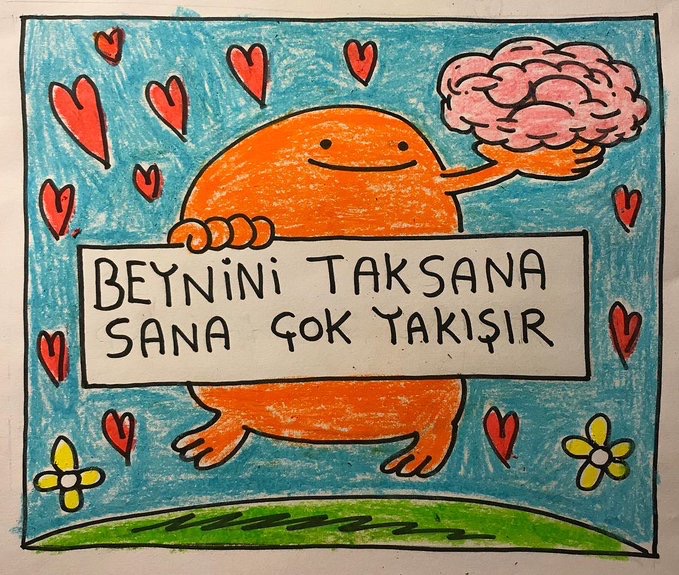 BEYNiNi TAKSANA
SANA ÇOK YAKIŞIR